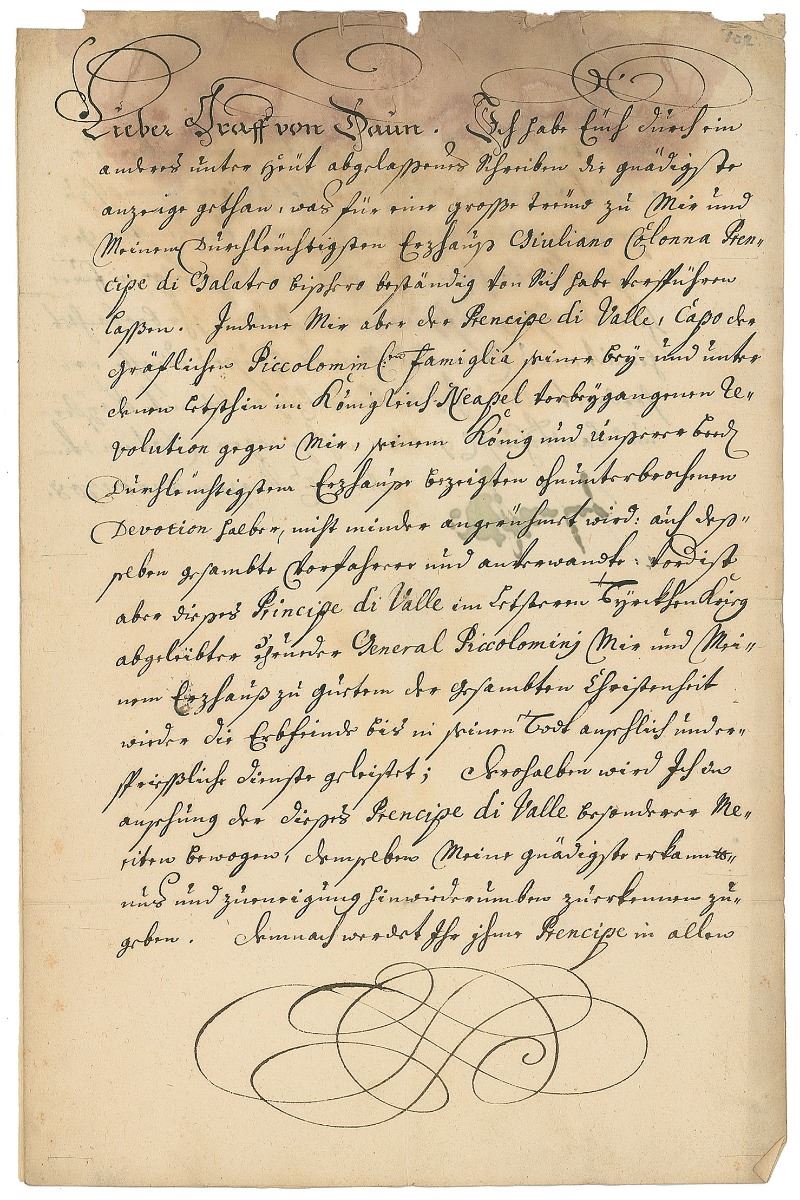 102
Lieber Graff von Daun. Ich habe Euch durch ein
anderes unter heut abgelaßenes Schreiben die gnädigste
anzeige gethan, was für eine große treüe zu Mir und
Meinem Durchleüchtigsten Erzhauß Giuliano Colonna Pren-
cipe di Galatro bißhero beständig von Sich habe verspühren
laßen. Indeme Mir aber der Prencipe di Valle, Capo der
gräflichen Piccolomin Famiglia seiner bey- und unter
denen letsthin im Königreich Neapel vorbeygangenen Re-
volution gegen Mir, seinem König und Unserer beed
Durchleüchtigstem Erzhauße bezeigten ohnunterbrochenen
Devotion halber, nicht minder angerühmet wird: auch deß-
selben gesambte Vorfahrer und anverwandte: Vordist
aber dießes Principe di Valle im letsteren Türckhen Krieg
abgeleibter Brueder General Piccolominj Mir und Mei-
nem Erzhauß zu guetem der gesambten Christenheit
wieder die Erbfeinde bis in seinen Todt ansehlich und er-
sprießliche dienste geleistet; Derohalben wird Ich in
ansehung der dießes Prencipe di Valle besonderer Me-
riten bewogen, demselben Meine gnädigste erkannt-
nus und zueneigung hinwiederumben zuerkennen zu-
geben. Demnach werdet Ihr ihme Prencipe in allen